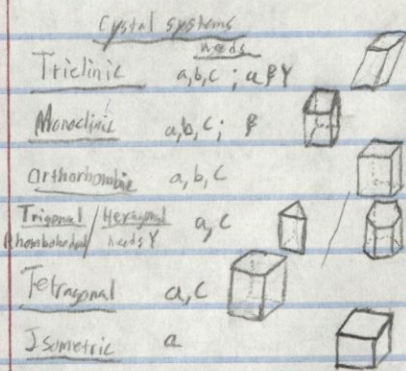 Crystal systems
needs
Triclinic a,b,c ; α β γ
Monoclinic a,b,c; β
Orthorhombic a,b,c
Trigonal / Hexagonal a,c
Rhombohedral needs γ
Tetragonal a,c
Isometric a